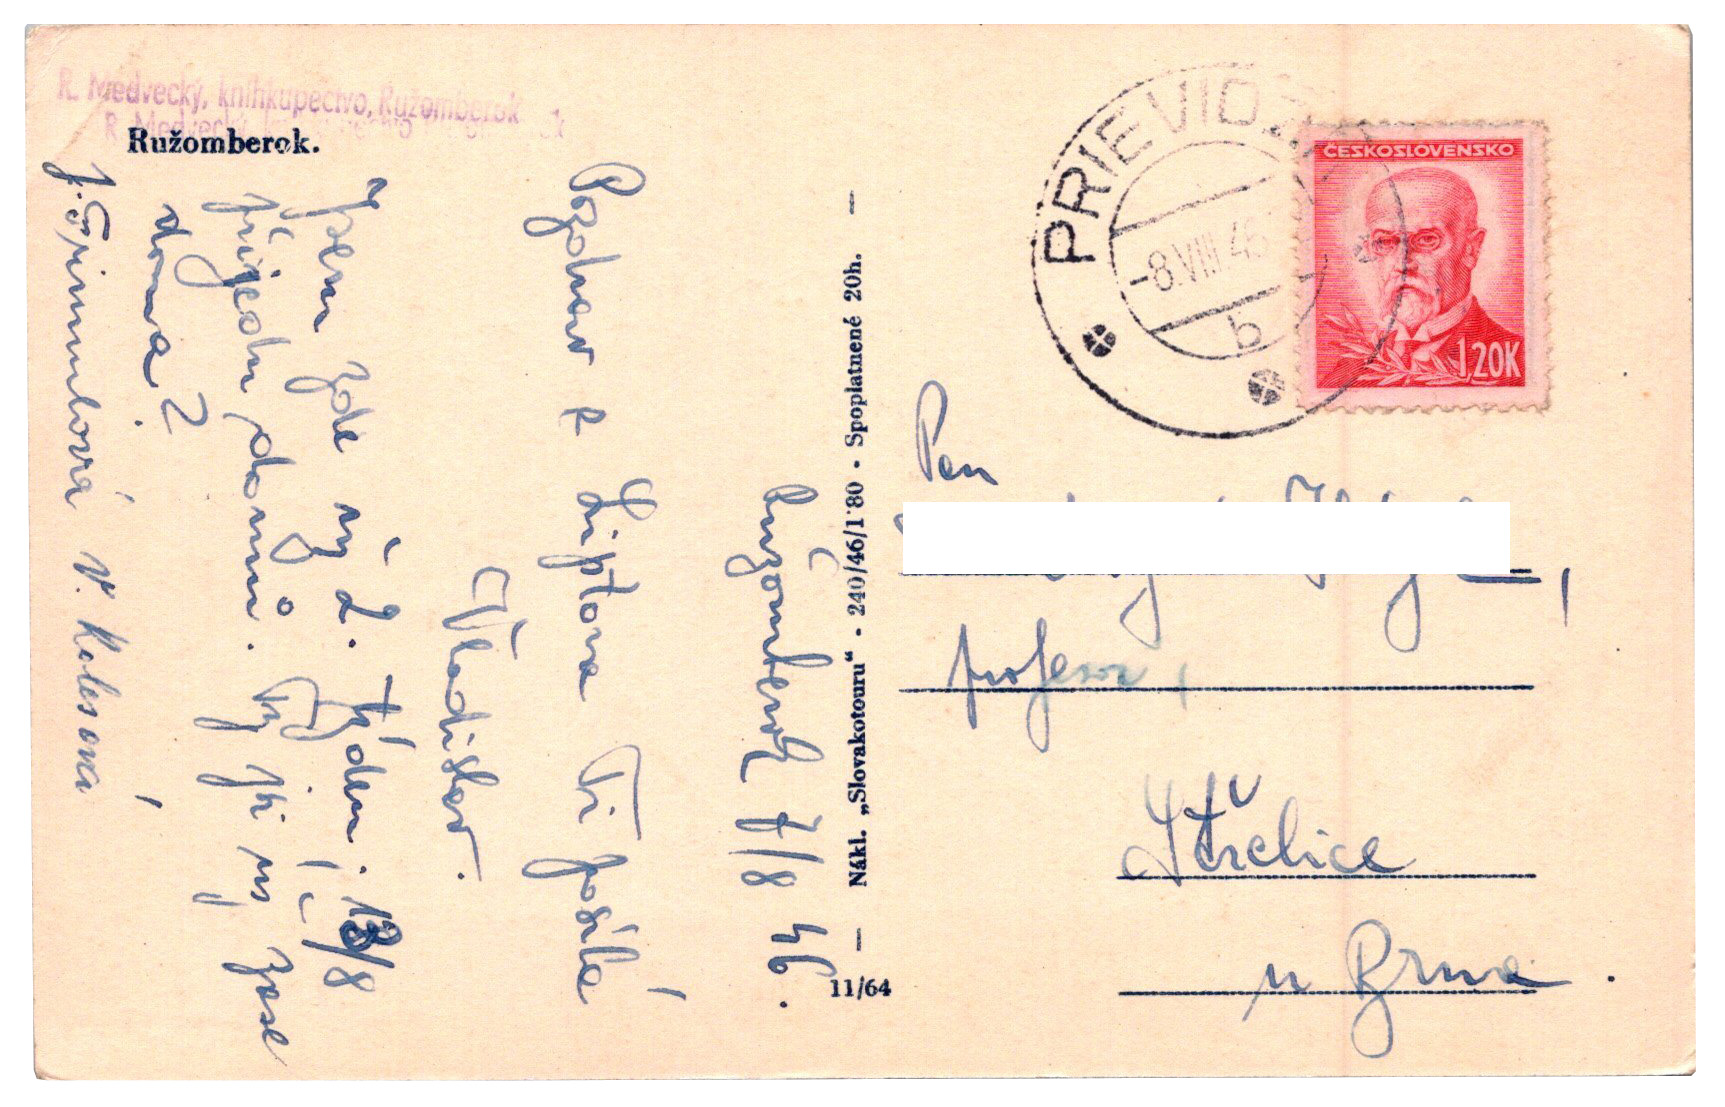 R. Medvecký, kníhkupectvo, Ružomberok
R. Medvecký, kníhkupectvo
Ružomberok.
Růžomberok 7/8 46.
Pozdrav z Liptova Ti posílá
Vladislav.
Jsem zde už 2. týden. 13/8
přijedu domů. Ty jsi už zase
doma?
V. Kolesová
Nákl. „Slovakotouru“ · 240/46/1·80 · Spoplatnené 20h. —
11/64
PRIEVIDZA
-8.VIII.46
b
ČESKOSLOVENSKO
1,20K
Pan
profesor,
Střelice
u Brna.